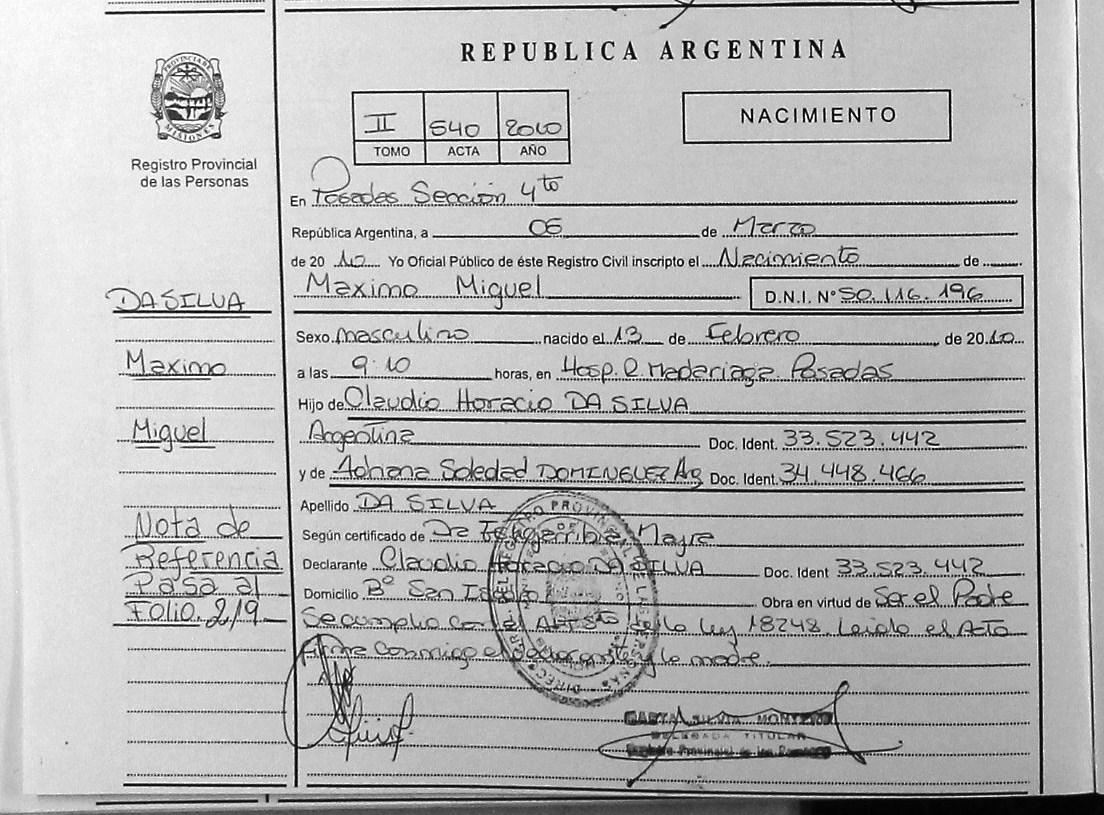 REPUBLICA ARGENTINA
PROVINCIA DE MISIONES
Registro Provincial
de las Personas
II 540 2010
TOMO ACTA AÑO
NACIMIENTO
En Posadas Sección 4to
República Argentina, a 06 de Marzo
de 2010 Yo Oficial Público de éste Registro Civil inscripto el Nacimiento de
Maximo Miguel D.N.I. Nº 50.116.196
Sexo masculino nacido el 13 de Febrero de 2010
a las 9:10 horas, en Hosp. R. Madariaga. Posadas
Hijo de Claudio Horacio DA SILVA
Argentina Doc. Ident. 33.523.442
y de Adriana Soledad DOMINGUEZ Arg Doc. Ident. 34.448.466
Apellido DA SILVA
Según certificado de
Declarante Claudio Horacio DA SILVA Doc. Ident 33.523.442
Domicilio Bº San Obra en virtud de Ser el Padre
Se cumplio con el de la ley 18248. Leido el Acta
Firma conmigo el declarante y la madre.
DA SILVA
Maximo
Miguel
Nota de
Referencia
Pasa al
Folio. 219.
SILVIA MONTERO
DELEGADA TITULAR
Registro Provincial de las Personas